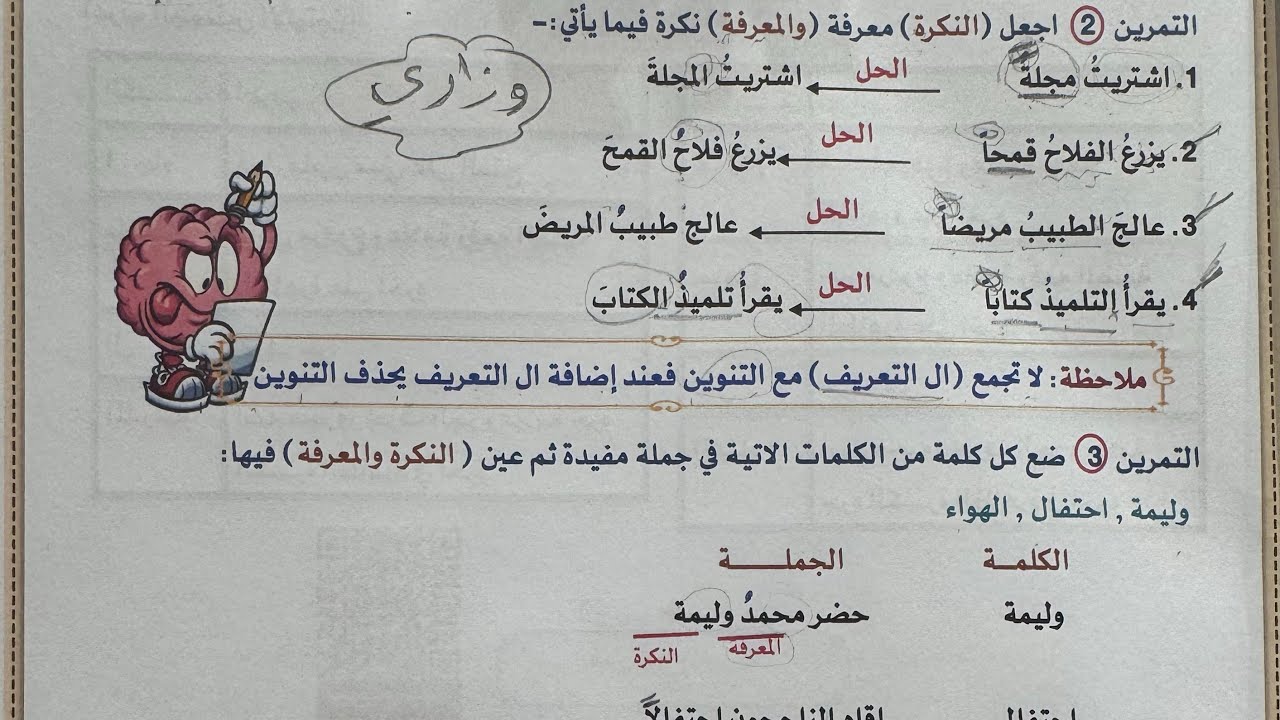 التمرين (2) اجعل (النكرة) معرفة (والمعرفة) نكرة فيما يأتي:-
وزاري
1. اشتريتُ مجلة الحل اشتريتُ المجلةَ
2. يزرعُ الفلاحُ قمحاً الحل يزرعُ فلاحُ القمحَ
3. عالجَ الطبيبُ مريضاً الحل عالج طبيبُ المريضَ
4. يقرأُ التلميذُ كتاباً الحل يقرأُ تلميذُ الكتابَ
ملاحظة: لا تجمع (ال التعريف) مع التنوين فعند إضافة ال التعريف يحذف التنوين
التمرين (3) ضع كل كلمة من الكلمات الاتية في جملة مفيدة ثم عين ( النكرة والمعرفة ) فيها:
وليمة , احتفال , الهواء
الكلمــة الجملــــة
وليمة حضر محمدُ وليمة
المعرفة النكرة